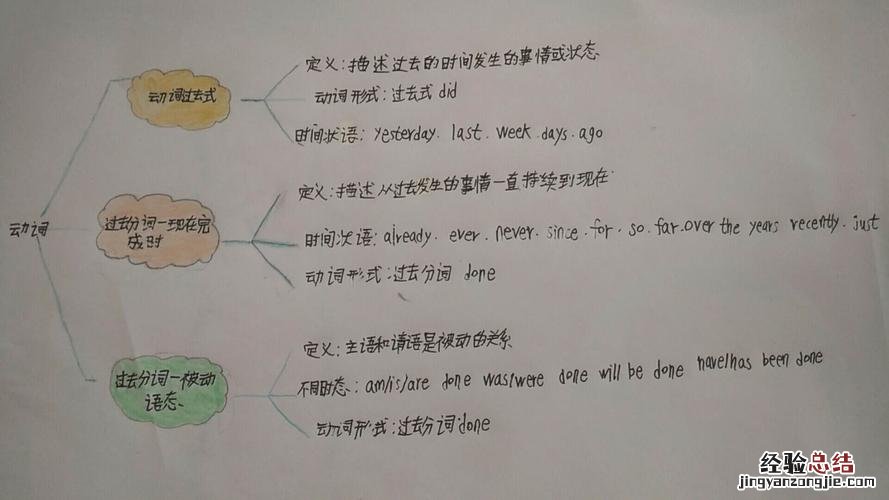 动词
动词过去式
定义:描述过去的时间发生的事情或状态
动词形式:过去式 did
时间状语: yesterday. last. week. days. ago
过去分词一现在完
成时
定义:描述从过去发生的事情一直持续到现在
时间次语: already. ever. never. since. for. so. far. over the years recently. just
动词形式:过去分词 done
过去分词一被动
语态
定义:主语和请语是被动的关系
不同时态: am/is/are done was/were done will be done have/has been done
动词形式:过去分词 done
经验总结
jingyanzongjie.com